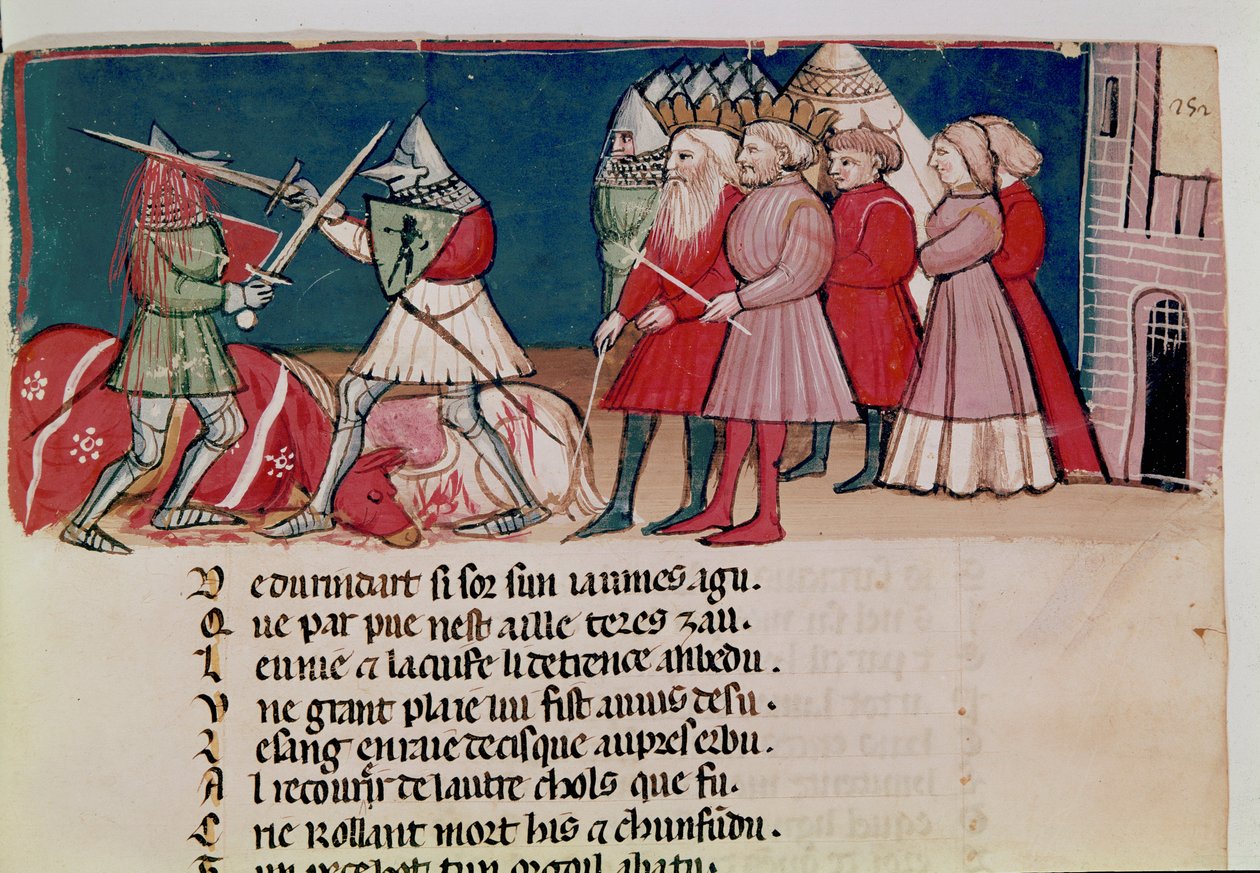 252
De durindart si sor sun iaumes agu.
Que par pue nest aille teres zau.
L eume & la cuife li detrence anbedu.
Vne grant plaie lui fist amus desu.
Lesang enraie decisque aupres erbu.
Al recourir de lautre chols que fu.
Crie Rollant mort his & chunfūdu.
tun orgoil abatu.